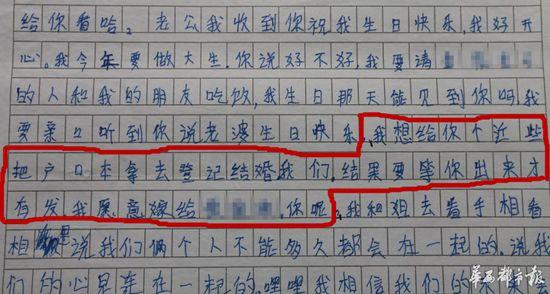 给你看哈。老公我收到你说我生日快乐,我好开
心。我今年要做大生.你说好不好.我要请
的人和我的朋友吃饮,我生日那天能见到你吗.我
要亲口听到你说老婆生日快乐.我想给你个近些
把户口本拿去登记结婚我们.结果要等你出来才
有发.我愿意嫁给 你呢.我和姐去看手相看
相 说我们俩个人不能多久都会在一起的.说我
们的心是连在一起的.哩哩我相信我们的
华西都市报